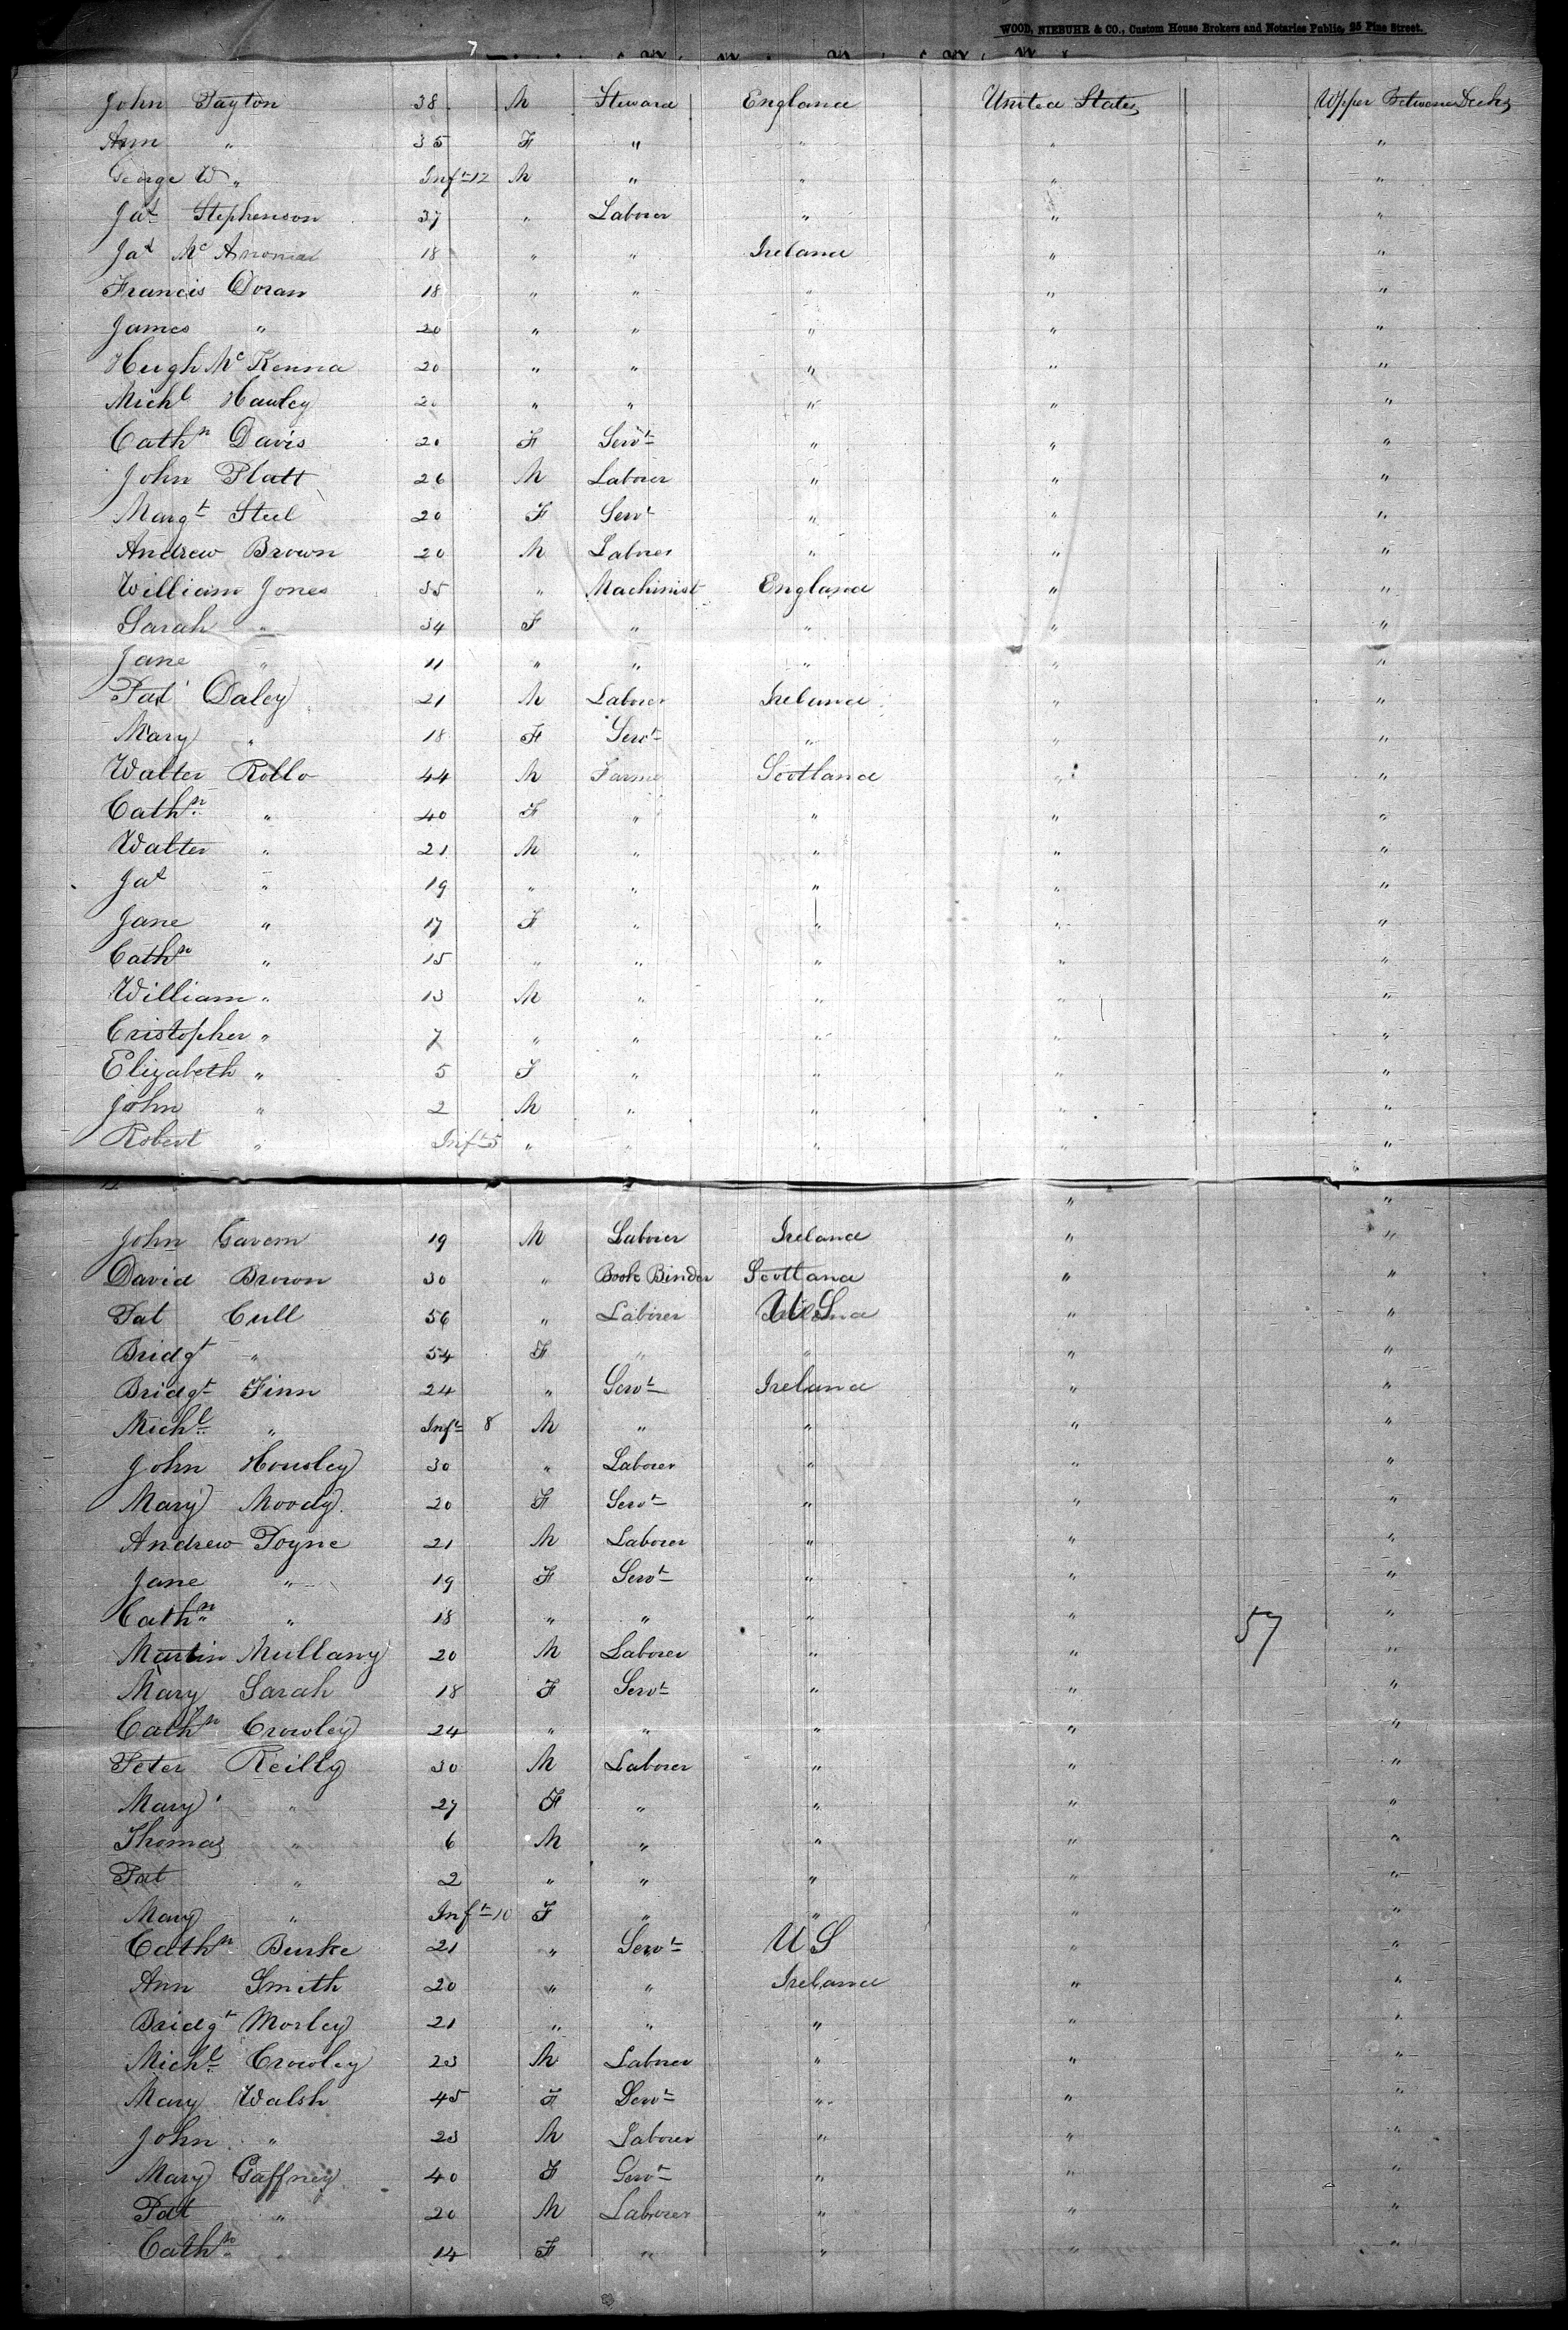 WOOD, NIEBUHR & CO., Custom House Brokers and Notaries Public, 25 Pine Street.
John Payton 38 M Steward England United States Upper Between Decks
Ann " 35 F " " " "
George W " Inft 12 M " " " "
Jas Stephenson 37 " Laborer " " "
Jas Mc 18 " " Ireland " "
Francis Doran 18 " " " " "
James " 20 " " " " "
Hugh McKenna 20 " " " " "
Michl Hauley 20 " " " " "
Cathn Davis 20 F Servt " " "
John Platt 26 M Laborer " " "
Margt Steel 20 F Servt " " "
Andrew Brown 20 M Laborer " " "
William Jones 35 " Machinist England " "
Sarah " 34 F " " " "
Jane " 11 " " " " "
Pat Daley 21 M Laborer Ireland " "
Mary " 18 F Servt " " "
Walter Rollo 44 M Farmer Scotland " "
Cathn " 40 F " " " "
Walter " 21 M " " " "
Jas " 19 " " " " "
Jane " 17 F " " " "
Cathn " 15 " " " " "
William " 13 M " " " "
Cristopher " 7 " " " " "
Elizabeth " 5 F " " " "
John " 2 M " " " "
Robert " Inft 5 " " " " "
" "
John Gavern 19 M Laborer Ireland " "
David Brown 30 " Book Binder Scotland " "
Pat Cull 56 " Laborer U S " "
Bridgt " 54 F " " " "
Bridgt Finn 24 " Servt Ireland " "
Michl " Inft 8 M " " " "
John Housley 30 " Laborer " " "
Mary Moody 20 F Servt " " "
Andrew Poyne 21 M Laborer " " "
Jane " 19 F Servt " " "
Cathn " 18 " " " " 57 "
Martin Mullany 20 M Laborer " " "
Mary Sarah 18 F Servt " " "
Cathn Crowley 24 " " " " "
Peter Reilly 30 M Laborer " " "
Mary " 27 F " " " "
Thomas " 6 M " " " "
Pat " 2 " " " " "
Mary " Inft 10 F " " " "
Cathn Burke 21 " Servt U S " "
Ann Smith 20 " " Ireland " "
Bridgt Morley 21 " " " " "
Michl Crowley 23 M Laborer " " "
Mary Walsh 45 F Servt " " "
John " 23 M Laborer " " "
Mary Gaffney 40 F Servt " " "
Pat " 20 M Laborer " " "
Cathn " 14 F " " " "